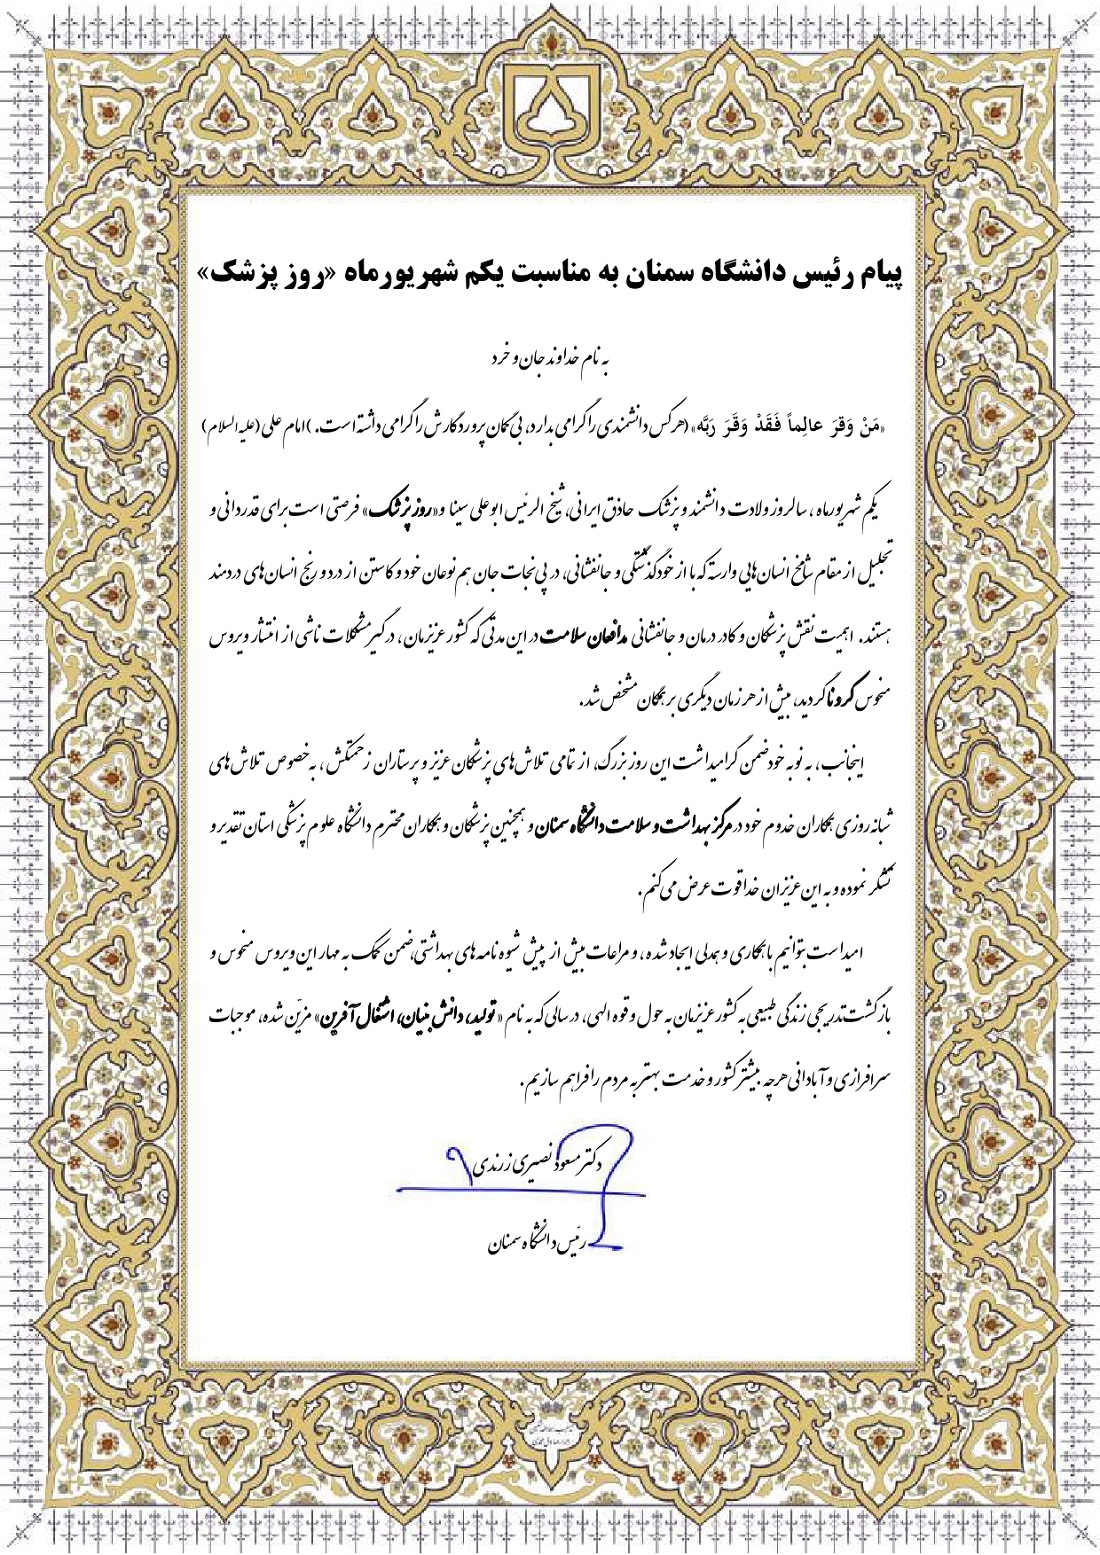 پیام رئیس دانشگاه سمنان به مناسبت یکم شهریورماه «روز پزشک»
به نام خداوند جان و خرد
«مَنْ وَقرَ عالِماً فَقَدْ وَقَرَ رَبَّه» (هرکس دانشمندی را گرامی بدارد، بی‌گمان پروردگارش را گرامی داشته است. )امام علی (علیه السلام)
یکم شهریورماه ، سالروز ولادت دانشمند و پزشک حاذق ایرانی، شیخ الرئیس ابوعلی سینا و «روز پزشک» فرصتی است برای قدردانی و
تجلیل از مقام شامخ انسان‌هایی وارسته که با از خودگذشتگی و جانفشانی، در پی نجات جان هم نوعان خود و کاستن از درد و رنج انسان‌های دردمند
هستند. اهمیت نقش پزشکان و کادر درمان و جانفشانی مدافعان سلامت در این مدتی که کشور عزیزمان، درگیر مشکلات ناشی از انتشار ویروس
منحوس کرونا گردید، بیش از هر زمان دیگری بر همگان مشخص شد.
اینجانب، به نوبه خود ضمن گرامیداشت این روز بزرگ، از تمامی تلاش‌های پزشکان عزیز و پرستاران زحمتکش ، به‌خصوص تلاش‌های
شبانه روزی همکاران خدوم خود در مرکز بهداشت و سلامت دانشگاه سمنان و همچنین پزشکان و همکاران محترم دانشگاه علوم پزشکی استان تقدیر و
تشکر نموده و به این عزیزان خداقوت عرض می‌کنم.
امید است بتوانیم با همکاری و همدلی ایجاد شده ، و مراعات بیش از پیش شیوه نامه های بهداشتی، ضمن کمک به مهار این ویروس منحوس و
بازگشت تدریجی زندگی طبیعی به کشور عزیزمان به حول و قوه الهی، در سالی که به نام «تولید، دانش بنیان، اشتغال آفرین» مزیّن شده، موجبات
سرافرازی و آبادانی هرچه بیشتر کشور و خدمت بهتر به مردم را فراهم سازیم.
دکتر مسعود نصیری زرندی
رئیس دانشگاه سمنان